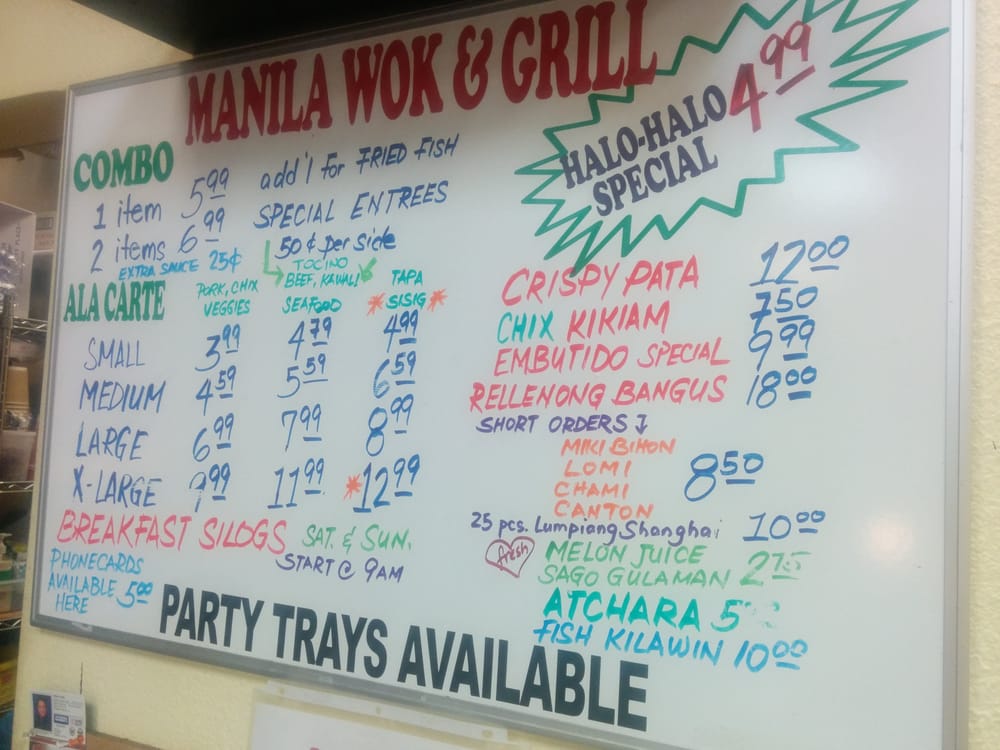 MANILA WOK & GRILL
HALO-HALO 4.99
SPECIAL
COMBO
1 item 5.99
2 items 6.99
EXTRA SAUCE 25¢
add'l for FRIED FISH
SPECIAL ENTREES
50¢ per side
ALA CARTE
PORK, CHIX
VEGGIES
TOCINO
BEEF, KAWALI
SEAFOOD
TAPA
SISIG
SMALL 3.99 4.79 4.99
MEDIUM 4.59 5.59 6.59
LARGE 6.99 7.99 8.99
X-LARGE 9.99 11.99 12.99
BREAKFAST SILOGS SAT. & SUN.
START @ 9AM
PHONECARDS
AVAILABLE 5.00
HERE
CRISPY PATA 12.00
CHIX KIKIAM 7.50
EMBUTIDO SPECIAL 9.99
RELLENONG BANGUS 18.00
SHORT ORDERS
MIKI BIHON
LOMI 8.50
CHAMI
CANTON
25 pcs. Lumpiang Shanghai 10.00
fresh MELON JUICE
SAGO GULAMAN 2.75
ATCHARA
FISH KILAWIN 10.00
PARTY TRAYS AVAILABLE